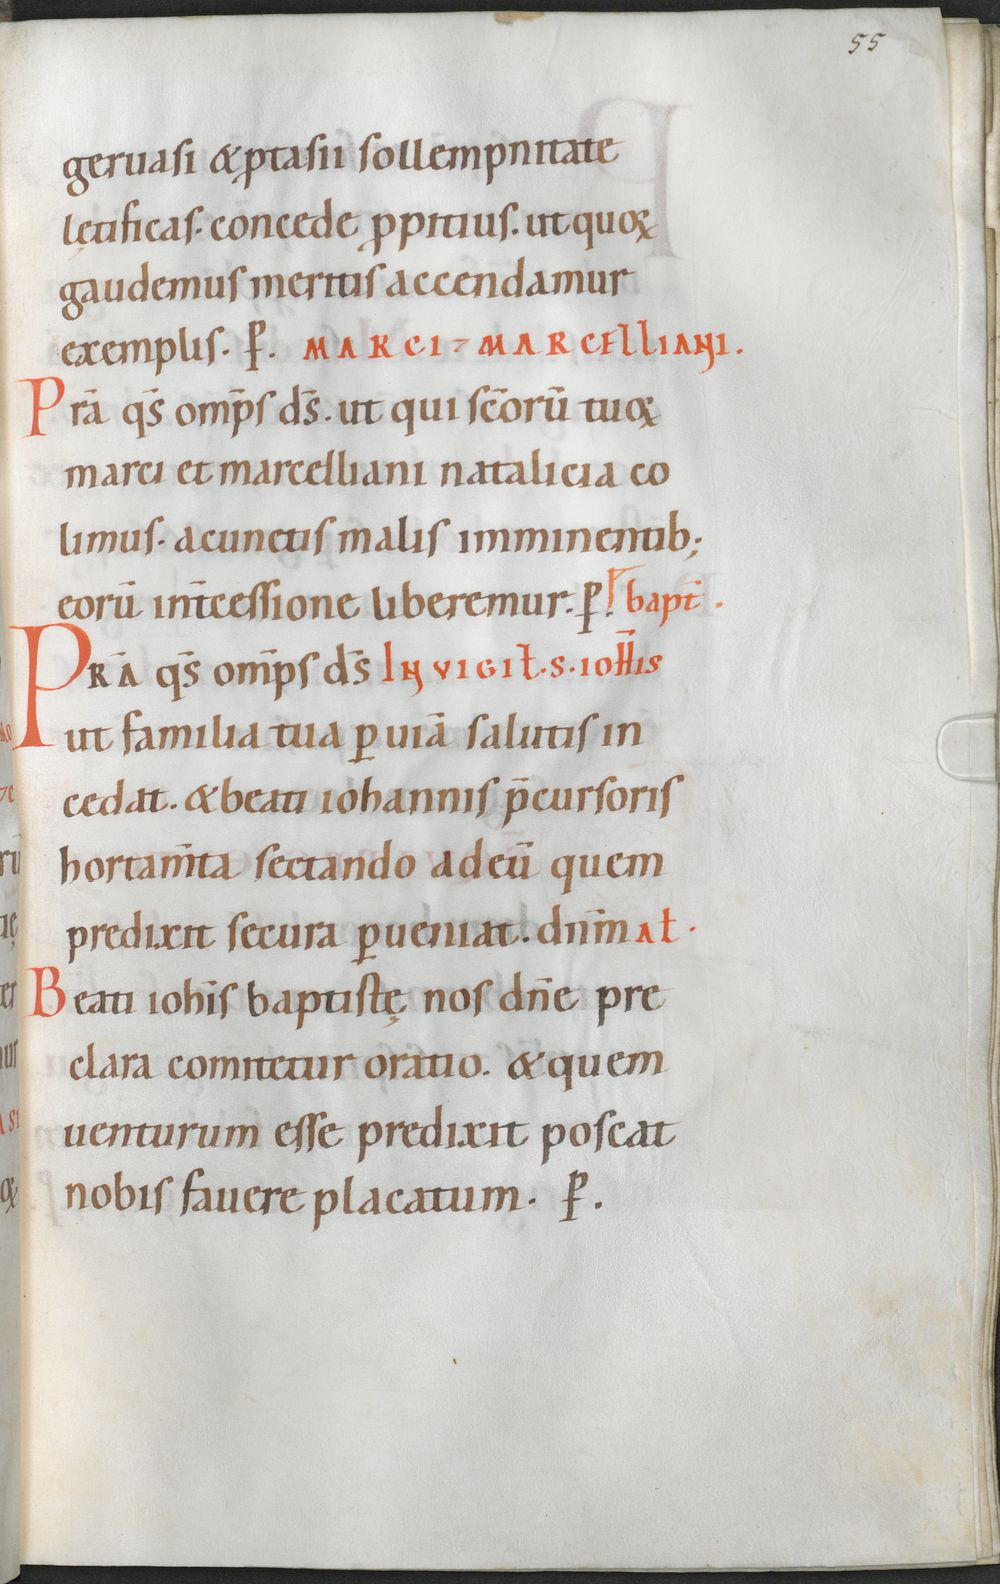 55
geruasi & ꝓtasii sollempnitate
lętificas. concede ꝓpitius. ut quoꝝ
gaudemus meritis accendamur
exemplis. P̄. MARCI ⁊ MARCELLIANI.
Prā qs̄ omp̄s ds̄. ut qui sc̄orū tuoꝝ
marci et marcelliani natalicia co
limus. a cunctis malis imminentib;
eorū int̄cessione liberemur. P̄. bapt̄.
PRĀ qs̄ omp̄s ds̄ IN VIGIŁ. S. IOH̄IS
ut familia tua ꝑ uiā salutis in
cedat. & beati iohannis p̄cursoris
hortam̄ta sectando ad eū quem
predixit secura ꝑueniat. dnm̄ AŁ.
Beati ioħis baptistę nos dn̄e pre
clara comitetur oratio. & quem
uenturum esse predixit poscat
nobis fauere placatum. P̄.